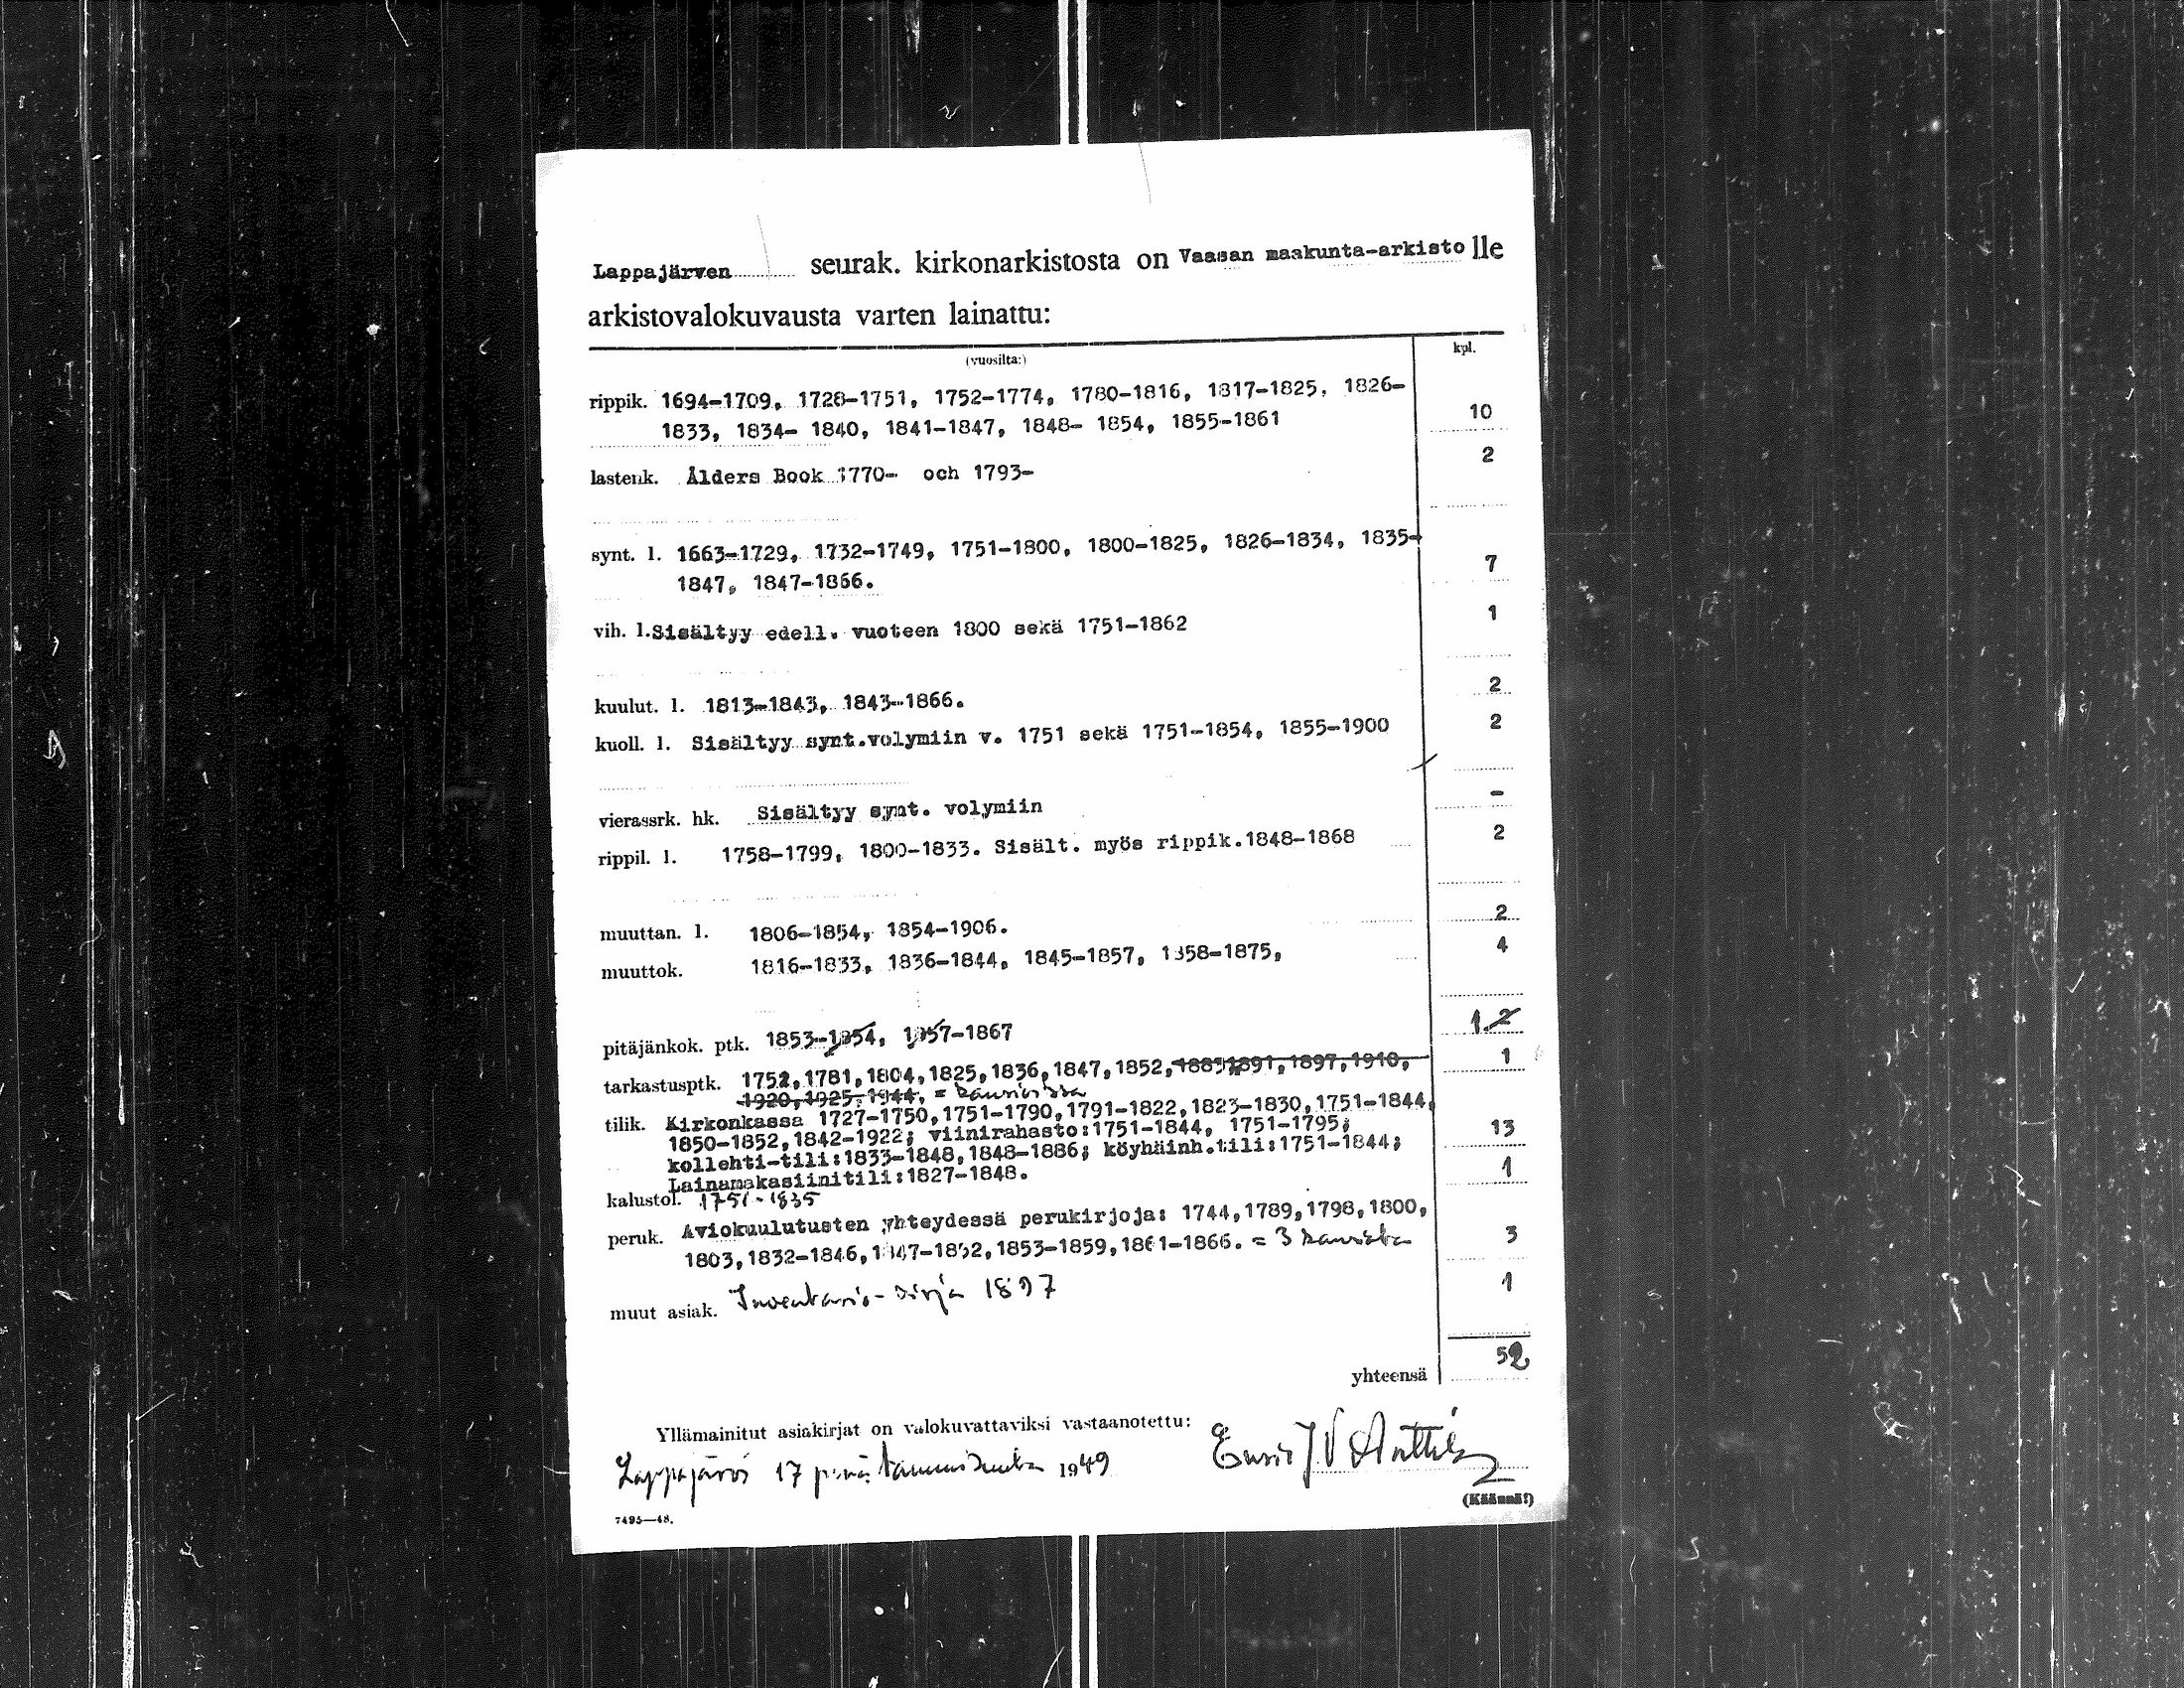 Lappajärven seurak. kirkonarkistosta on Vaasan maakunta-arkisto lle
arkistovalokuvausta varten lainattu:
(vuosilta:) kpl.
rippik. 1694-1709, 1728-1751, 1752-1774, 1780-1816, 1817-1825, 1826-
1833, 1834- 1840, 1841-1847, 1848- 1854, 1855-1861 10
lastenk. Ålders Book 1770- och 1793- 2
synt. l. 1663-1729, 1732-1749, 1751-1800, 1800-1825, 1826-1834, 1835-
1847, 1847-1866. 7
vih. l. Sisältyy edell. vuoteen 1800 sekä 1751-1862 1
kuulut. l. 1813-1843, 1843-1866. 2
kuoll. l. Sisältyy synt.volymiin v. 1751 sekä 1751-1854, 1855-1900 2
vierassrk. hk. Sisältyy synt. volymiin -
rippil. l. 1758-1799, 1800-1833. Sisält. myös rippik.1848-1868 2
muuttan. l. 1806-1854, 1854-1906. 2
muuttok. 1816-1833, 1836-1844, 1845-1857, 1858-1875, 4
pitäjänkok. ptk. 1853-1854, 1857-1867 1. 2
tarkastusptk. 1752,1781,1804,1825,1836,1847,1852,1885,1891,1897,1910, 1
1920,1925,1944, = kansiossa
tilik. Kirkonkassa 1727-1750,1751-1790,1791-1822,1823-1830,1751-1844,
1850-1852,1842-1922; viinirahasto:1751-1844, 1751-1795; 13
kollehti-tili:1833-1848,1848-1886; köyhäinh.tili:1751-1844;
Lainamakasiinitili:1827-1848.
kalustol. 1751-1835 1
peruk. Aviokuulutusten yhteydessä perukirjoja: 1744,1789,1798,1800,
1803,1832-1846,1847-1852,1853-1859,1861-1866. = 3 kansista 3
muut asiak. Inventario-kirja 1897 1
yhteensä 52
Yllämainitut asiakirjat on valokuvattaviksi vastaanotettu:
Lappajärvi 17 p:nä tammikuuta 1949 J V Anttila
(Käännä!)
7495—48.